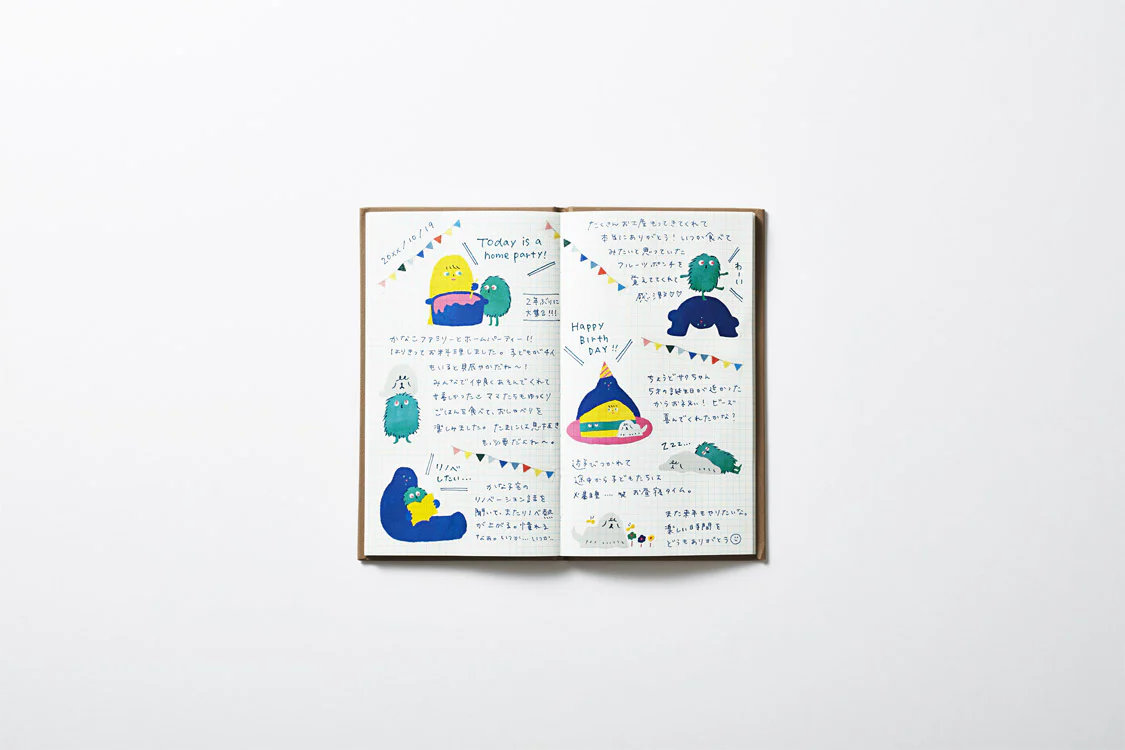 20xx/10/19
Today is a
home party!
2年ぶりに
大集合!!!
かなこファミリーとホームパーティー!!
はりきってお料理しました。子どもが4人
もいると賑やかだね〜!
みんなで仲良くあそんでくれて
ママたちもゆっくり
ごはんを食べて、おしゃべりを
楽しみました。たまには息抜き
も必要だよね〜。
リノベ
したい...
かな子宅の
リノベーション話を
聞いて、またリノベ熱
が上がる。憧れる
なぁ。いつか...いつか...
たくさんお土産もってきてくれて
本当にありがとう!いつか食べて
みたいと思っていた
フルーツポンチを
覚えててくれて
感激♡♡
わーい
Happy
Birth
DAY!!
ちょうどサクちゃん
5才の誕生日が近かった
からお祝い!ビーズ
喜んでくれたかな?
zzz...
遊びつかれて
途中から子どもたちは
お昼寝タイム。
また来年もやりたいな。
楽しい時間を
どうもありがとう